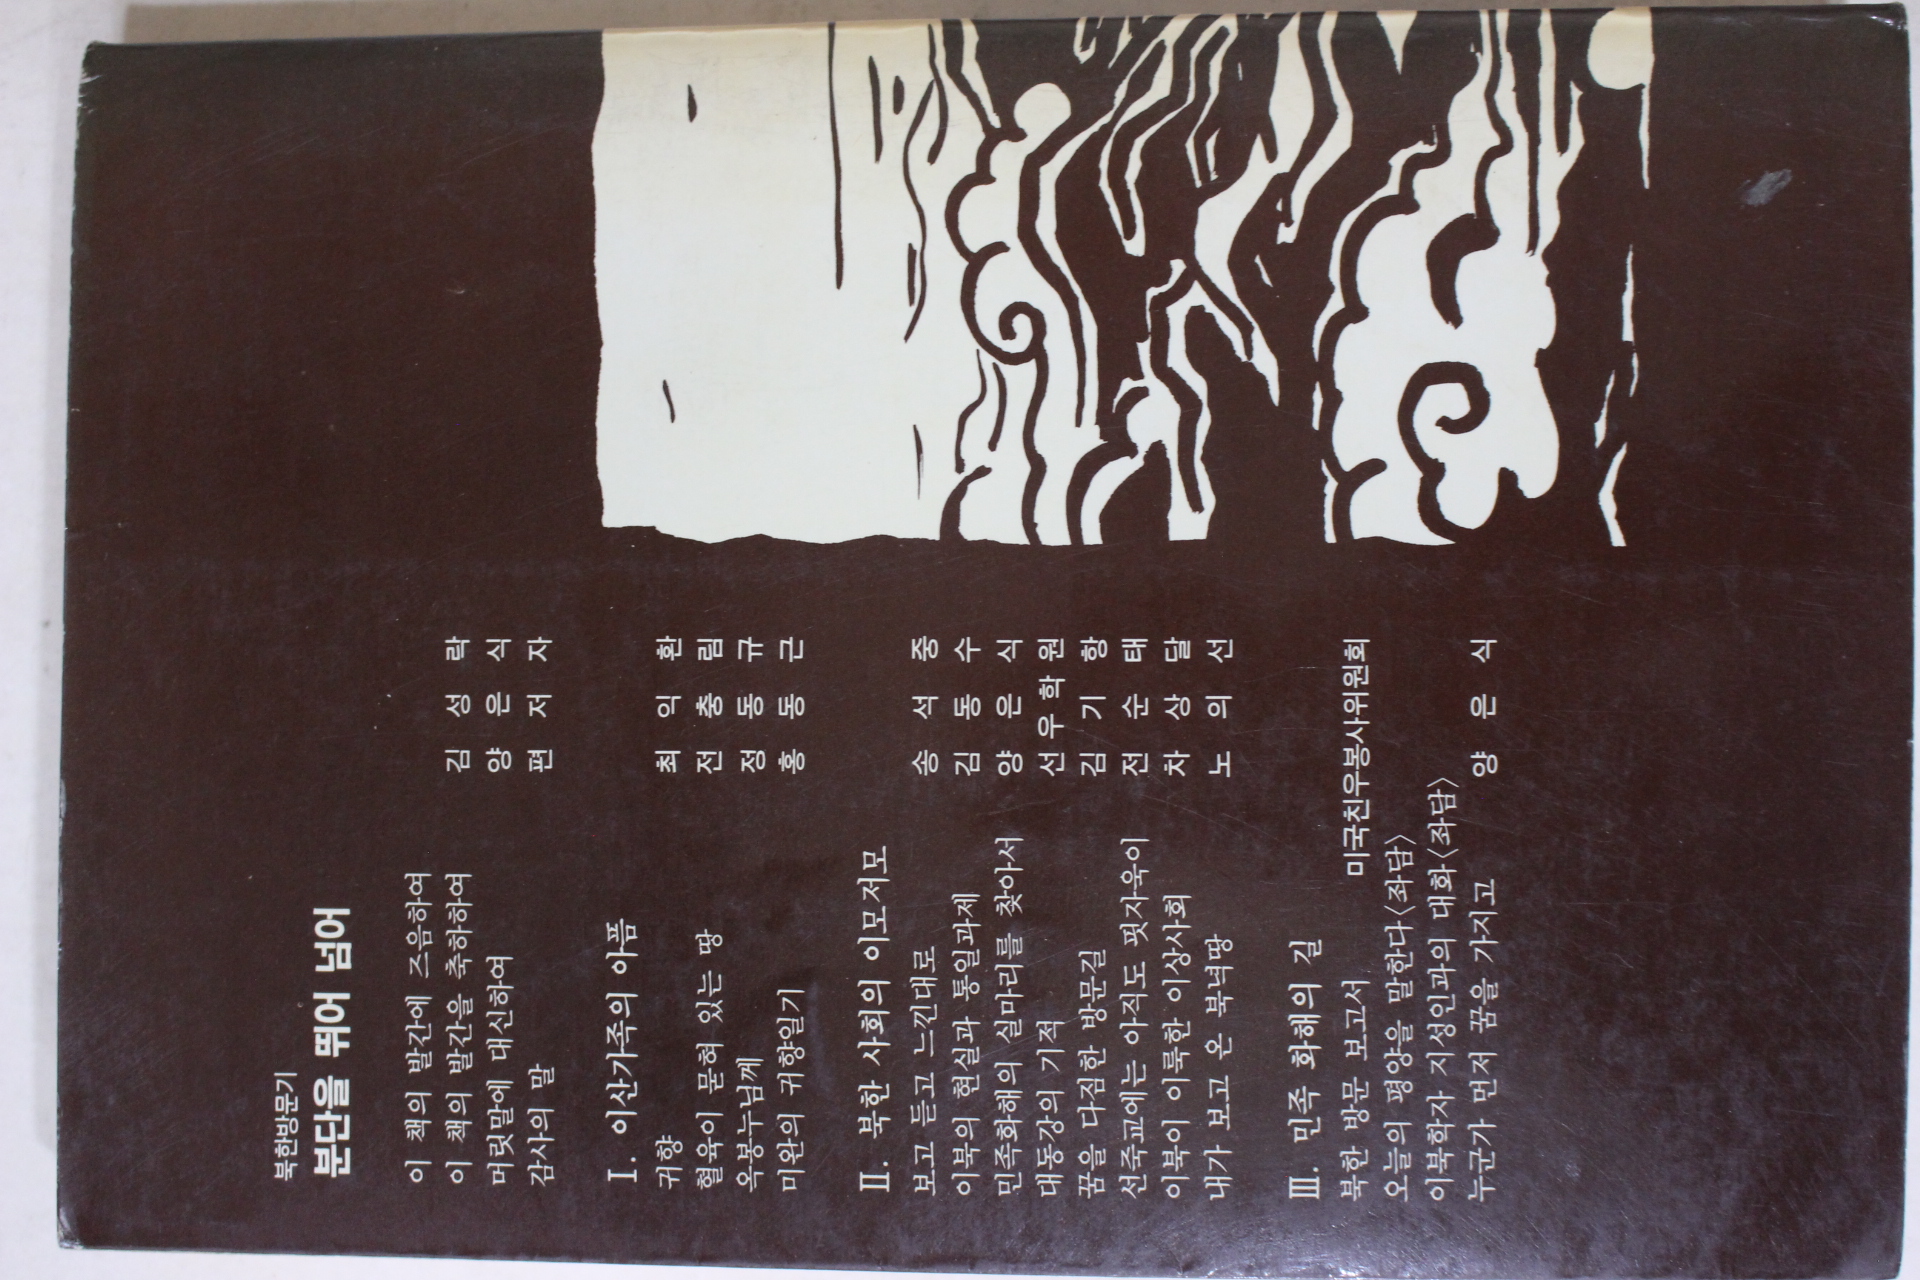 북한방문기
분단을 뛰어 넘어
이 책의 발간에 즈음하여
이 책의 발간을 축하하여 김성락
머릿말에 대신하여 양은식
감사의 말 편저자
Ⅰ. 이산가족의 아픔
귀향 최익환
혈육이 묻혀 있는 땅 전충림
옥봉누님께 정동규
미완의 귀향일기 홍동근
Ⅱ. 북한 사회의 이모저모
보고 듣고 느낀대로 송석중
이북의 현실과 통일과제 김동수
민족화해의 실마리를 찾아서 양은식
대동강의 기적 선우학원
꿈을 다짐한 방문길 김기항
선죽교에는 아직도 핏자욱이 전순태
이북이 이룩한 이상사회 차상달
내가 보고 온 북녁땅 노의선
Ⅲ. 민족 화해의 길
북한 방문 보고서 미국친우봉사위원회
오늘의 평양을 말한다〈좌담〉
이북학자 지성인과의 대화〈좌담〉
누군가 먼저 꿈을 가지고 양은식